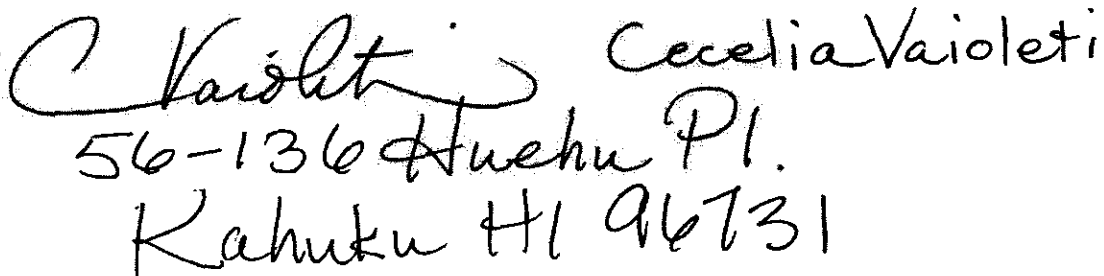 C Vaioleti Cecelia Vaioleti
56-136 Huehu Pl.
Kahuku HI 96731